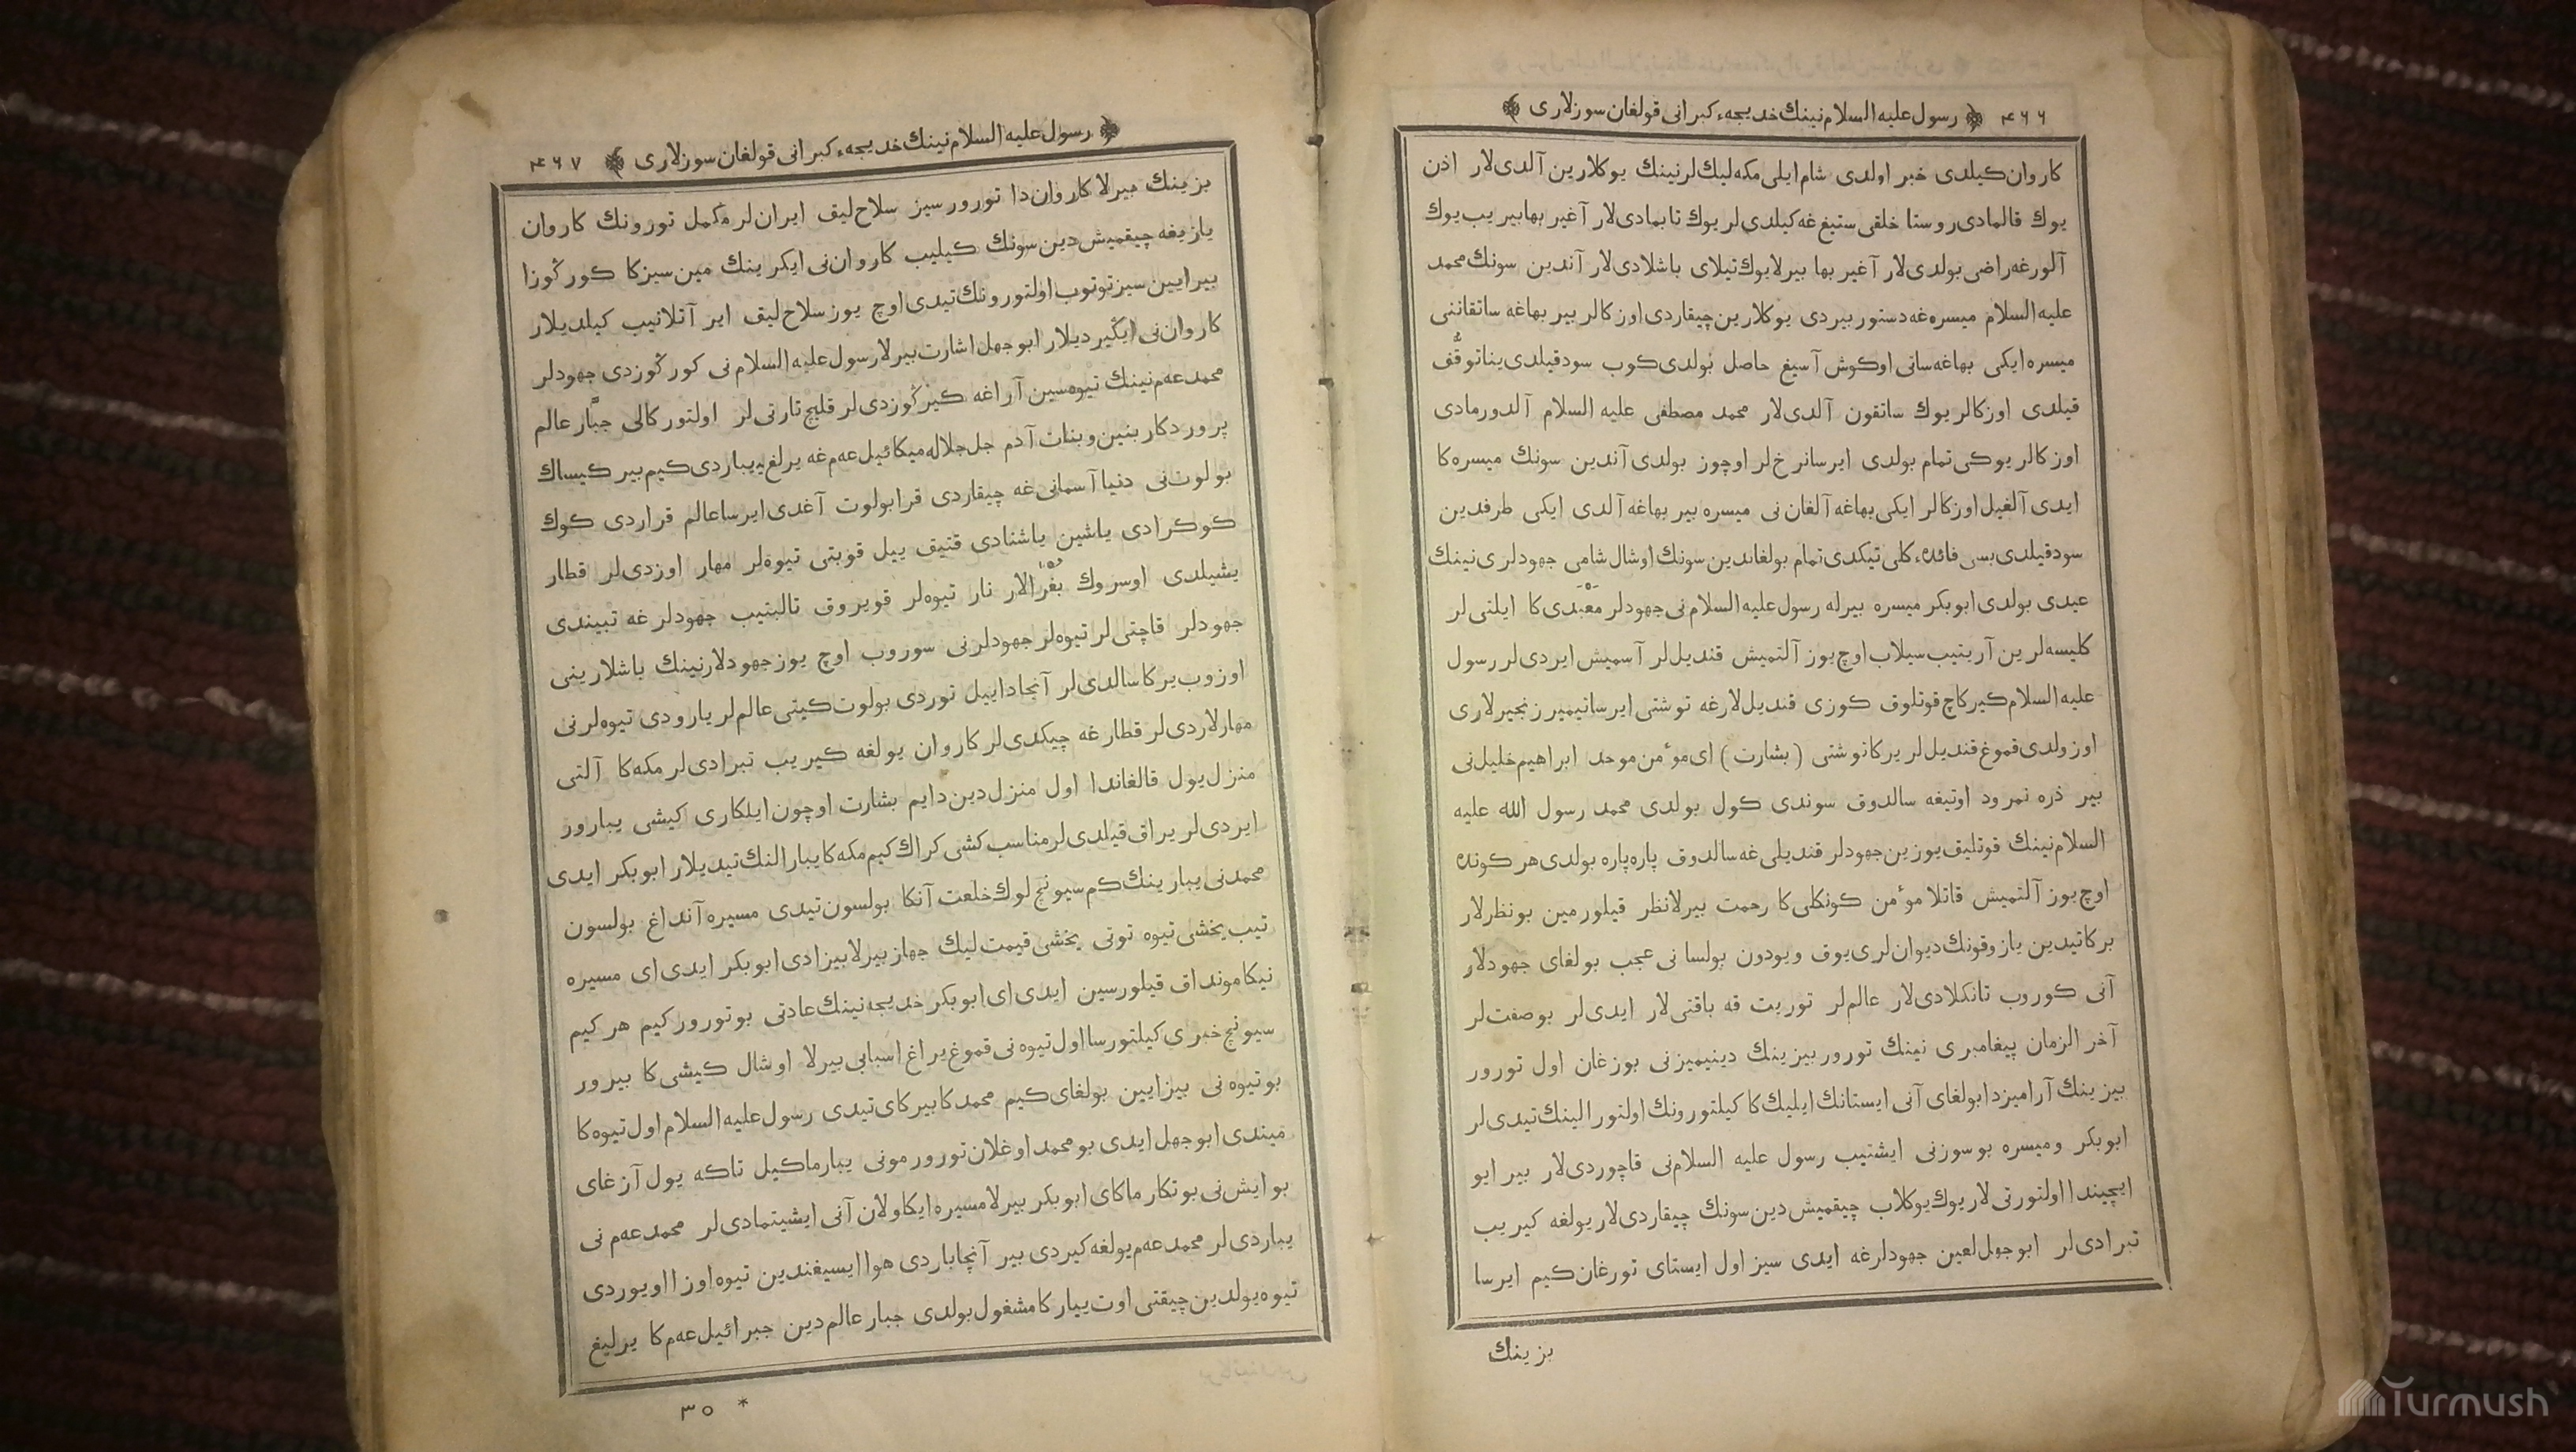 ۴۶۶ رسول علیه السلام نینك خدیجهء کبرانی قولغان سوزلاری
کاروان کیلدی خبر اولدی شام ایلی مکه لیك لرنینك یوکلارین آلدی لار اذن
یوك قالمادی روستا خلقی ستیغ غه کیلدی لر یوك تابمادی لار آغیر بهابیریب یوك
آلورغه راضی بولدی لار آغیر بها بیرلا یوك تیلای باشلادی لار آندین سونك محمد
علیه السلام میسره غه دستور بیردی یوکلارین چیقاردی اوزکالر بیر بهاغه ساتقاننی
میسره ایکی بهاغه ساتی اوکوش آسیغ حاصل بولدی کوب سود قیلدی ینا توقف
قیلدی اوزکالر یوك ساتقون آلدی لار محمد مصطفی علیه السلام آلدورمادی
اوزکالر یوکی تمام بولدی ایرسا نرخ لر اوچوز بولدی آندین سونك میسره کا
ایدی آلغیل اوزکالر ایکی بهاغه آلغان نی میسره بیر بهاغه آلدی ایکی طرفدین
سود قیلدی بسی فائدهء کلی تیکدی تمام بولغاندین سونك اوشال شامی جهودلری نینك
عیدی بولدی ابوبکر میسره بیرله رسول علیه السلام نی جهودلر معبدی کا ایلتی لر
کلیسه لرین آریتیب سیلاب اوچ یوز آلتمیش قندیل لر آسمیش ایردی لر رسول
علیه السلام کیرکاچ قوتلوق کوزی قندیل لارغه توشتی ایرسا تیمیر زنجیرلاری
اوزولدی قموغ قندیل لر یرکا توشتی (بشارت) ای مؤمن موحد ابراهیم خلیل نی
بیر ذره نمرود اوتیغه سالدوق سوندی کول بولدی محمد رسول الله علیه
السلام نینك قوتلیق یوزین جهودلر قندیلی غه سالدوق پاره پاره بولدی هر کونده
اوچ یوز آلتمیش قاتلا مؤمن کونکلی کا رحمت بیرلا نظر قیلورمین بو نظرلار
برکاتیدین یازوقونك دیوان لری یوق ویودون بولسا نی عجب بولغای جهودلار
آنی کوروب تانکلادی لار عالم لر توریت قه باقتی لار ایدی لر بو صفت لر
آخر الزمان پیغامبری نینك تورور بیزینك دینیمیزنی بوزغان اول تورور
بیزینك آرامیزدا بولغای آنی ایستانك ایلیك کا کیلتورونك اولتورالینك تیدی لر
ابوبکر ومیسره بو سوزنی ایشتیب رسول علیه السلام نی قاچوردی لار بیر ایو
ایچیندا اولتورتی لار یوك یوکلاب چیقمیش دین سونك چیقاردی لار یولغه کیریب
تبرادی لر ابوجهل لعین جهودلرغه ایدی سیز اول ایستای تورغان کیم ایرسا
بزینك
رسول علیه السلام نینك خدیجهء کبرانی قولغان سوزلاری ۴۶۷
بزینك بیرلا کاروان دا تورور سیز سلاح لیق ایران لر مکمل تورونك کاروان
یازیغه چیقمیش دین سونك کیلیب کاروان نی ایکرینك مین سیزکا کورکوزا
بیرایین سیز توتوب اولتورونك تیدی اوچ یوز سلاح لیق ایر آتلانیب کیلدیلار
کاروان نی ایکیردیلار ابوجهل اشارت بیرلا رسول علیه السلام نی کورکوزدی جهودلر
محمد عه م نینك تیوه سین آراغه کیزکوزدی لر قلیچ تارتی لر اولتورکالی جبار عالم
پروردکار بنین وبنات آدم جل جلاله میکائیل عه م غه یرلغ ییباردی کیم بیر کیساك
بولوت نی دنیا آسمانی غه چیقاردی قرا بولوت آغدی ایرسا عالم قراردی کوك
کوکرادی یاشین یاشنادی قتیق ییل قوبتی تیوه لر مهار اوزدی لر قطار
یشیلدی اوسروك بغرالار نار تیوه لر قویروق تالبتیب جهودلرغه تبیندی
جهودلر قاچتی لر تیوه لر جهودلرنی سوروب اوچ یوز جهودلارنینك باشلارینی
اوزوب یرکا سالدی لر آنجادا ییل توردی بولوت کیتی عالم لر یارودی تیوه لرنی
مهارلاردی لر قطارغه چیکدی لر کاروان یولغه کیریب تبرادی لر مکه کا آلتی
منزل یول قالغاندا اول منزل دین دایم بشارت اوچون ایلکاری کیشی یبارور
ایردی لر یراق قیلدی لر مناسب کشی کراك کیم مکه کا یبارالنك تیدیلار ابوبکر ایدی
محمدنی یبارینك کم سیونچ لوك خلعت آنکا بولسون تیدی مسیره آنداغ بولسون
تیب یخشی تیوه توتی یخشی قیمت لیك جهاز بیرلا بیزادی ابوبکر ایدی ای مسیره
نیکا مونداق قیلورسین ایدی ای ابوبکر خدیجه نینك عادتی بو تورور کیم هر کیم
سیونچ خبری کیلتورسا اول تیوه نی قموغ یراغ اسبابی بیرلا اوشال کیشی کا بیرور
بو تیوه نی بیزایین بولغای کیم محمدکا بیرکای تیدی رسول علیه السلام اول تیوه کا
میندی ابوجهل ایدی بو محمد اوغلان تورور مونی یبارماکیل تاکه یول آزغای
بو ایش نی بوتکارماکای ابوبکر بیرلا مسیره ایکاولان آنی ایشیتمادی لر محمد عه م نی
یباردی لر محمد عه م یولغه کیردی بیر آنجا باردی هوا ایسیغندین تیوه اوزا اویوردی
تیوه یولدین چیقتی اوت ییارکا مشغول بولدی جبار عالم دین جبرائیل عه م کا یرلیغ
* ۳۰
Turmush